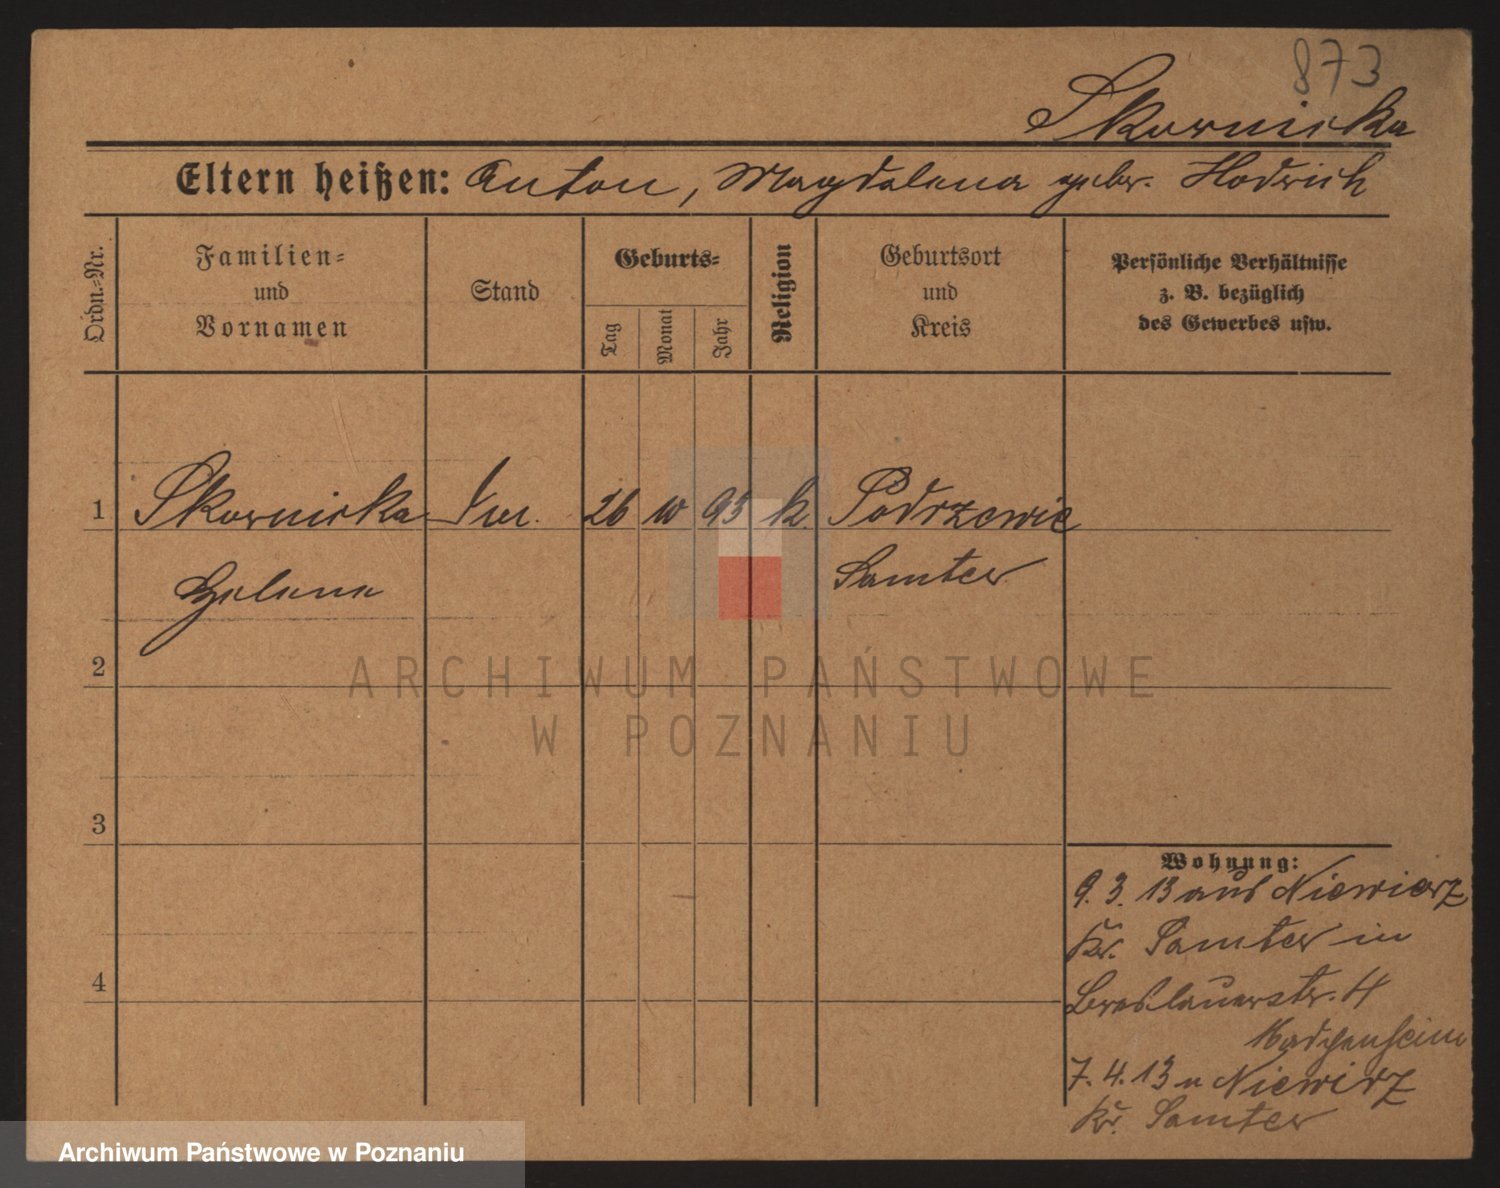 873
Skornicka
Eltern heißen: Anton, Magdalena gebr. Hodrich
Ordn.-Nr.
Familien-
und
Vornamen
Stand
Geburts-
Tag
Monat
Jahr
Religion
Geburtsort
und
Kreis
Persönliche Verhältnisse
z. B. bezüglich
des Gewerbes usw.
1 Skornicka 26 10 93 k Podrzewie
Helena Samter
2
3
4
ARCHIWUM PAŃSTWOWE
W POZNANIU
Wohnung:
9. 3. 13 aus Niewierz
Kr. Samter in
Breslauerstr. 4
Mädchenheim
7. 4. 13 n Niewirz
Kr. Samter
Archiwum Państwowe w Poznaniu